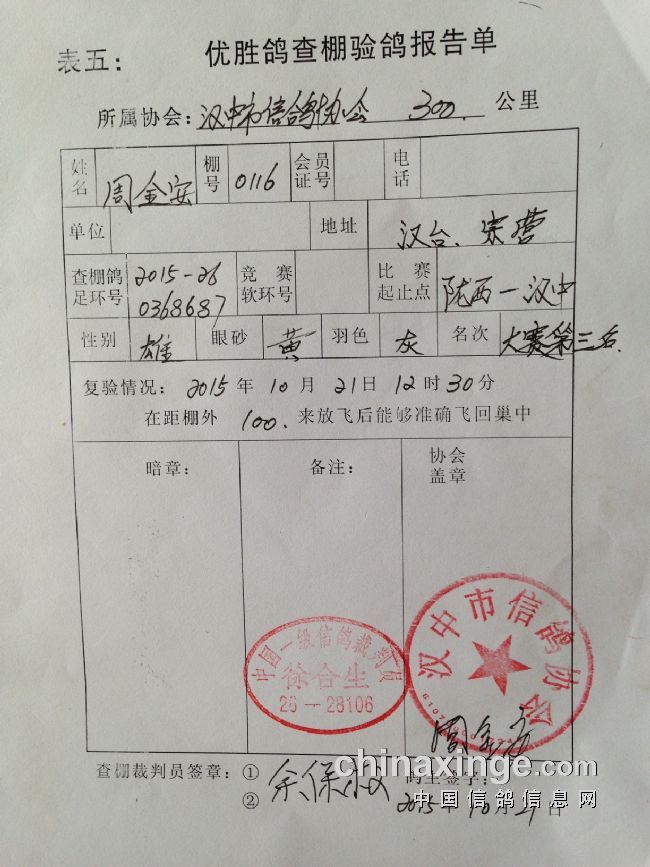 表五：
优胜鸽查棚验鸽报告单
所属协会：汉中市信鸽协会 300. 公里
姓名 周金安 棚号 0116 会员证号 电话
单位 地址 汉台、宗营
查棚鸽足环号 2015-26 0368687 竞赛软环号 比赛起止点 陇西一汉中
性别 雄 眼砂 黄 羽色 灰 名次 大赛第三名.
复验情况：2015年10月21日12时30分
在距棚外 100. 来放飞后能够准确飞回巢中
暗章： 备注： 协会盖章
中国一级信鸽裁判员
徐合生
26－28106
汉中市信鸽协会
周金安
查棚裁判员签章：① 余保 鸽主签字：
② 2015年10月21日
chinaxinge.com
中国信鸽信息网